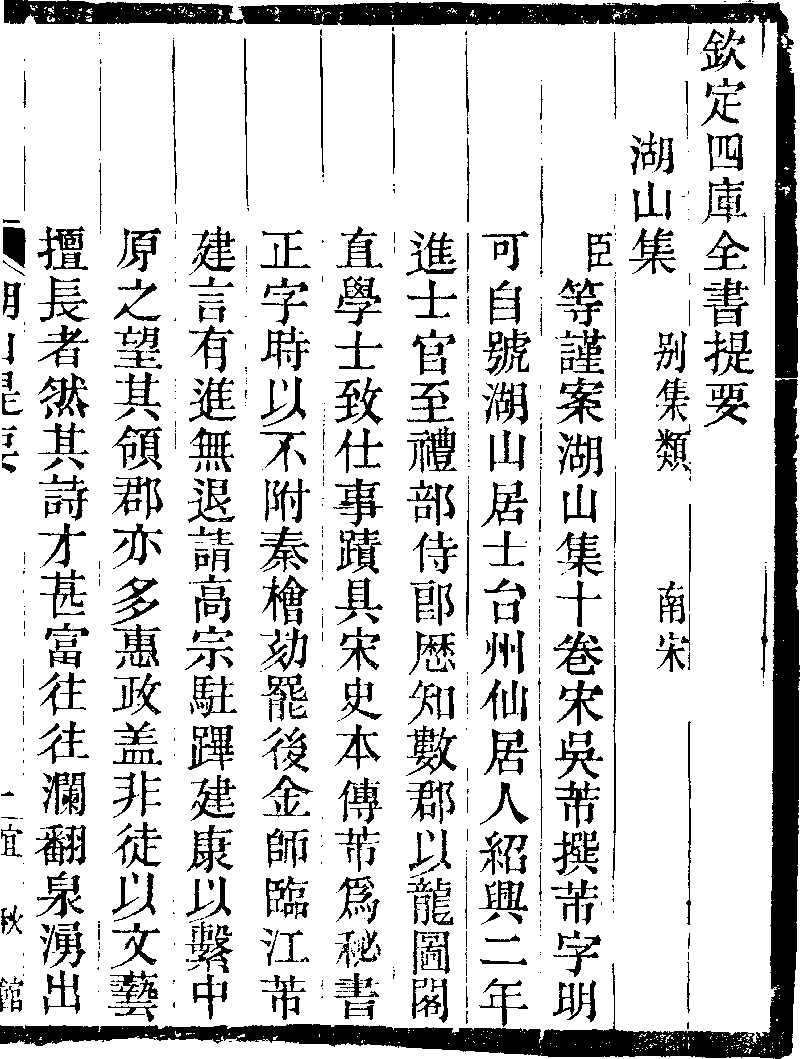 欽定四庫全書提要
湖山集　别集類　南宋
臣等謹案湖山集十卷宋吳芾撰芾字明
可自號湖山居士台州仙居人紹興二年
進士官至禮部侍郎歷知數郡以龍圖閣
直學士致仕事蹟具宋史本傳芾爲秘書
正字時以不附秦檜劾罷後金師臨江芾
建言有進無退請高宗駐蹕建康以繫中
原之望其領郡亦多惠政盖非徒以文藝
擅長者然其詩才甚富往往瀾翻泉湧出
湖山提要
一　宜秋館